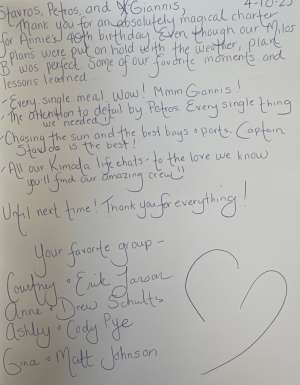 4-10-23
Stavros, Petros, and Giannis,
Thank you for an absolutely magical charter
for Annie's 40th birthday. Even though our Milos
plans were put on hold with the weather, plan
B was perfect. Some of our favorite moments and
lessons learned...
- Every single meal. Wow! Mmm Giannis!
- The attention to detail by Petros. Every single thing
we needed!!
- Chasing the sun and the best bays + ports. Captain
Stavros is the best!
- All our life chats - to the love we know
you'll find our amazing crew!!
Until next time! Thank you for everything!
Your favorite group -
Courtney + Erik Larson
Anne + Drew Schultz
Ashley + Cody Pye
Gina + Matt Johnson